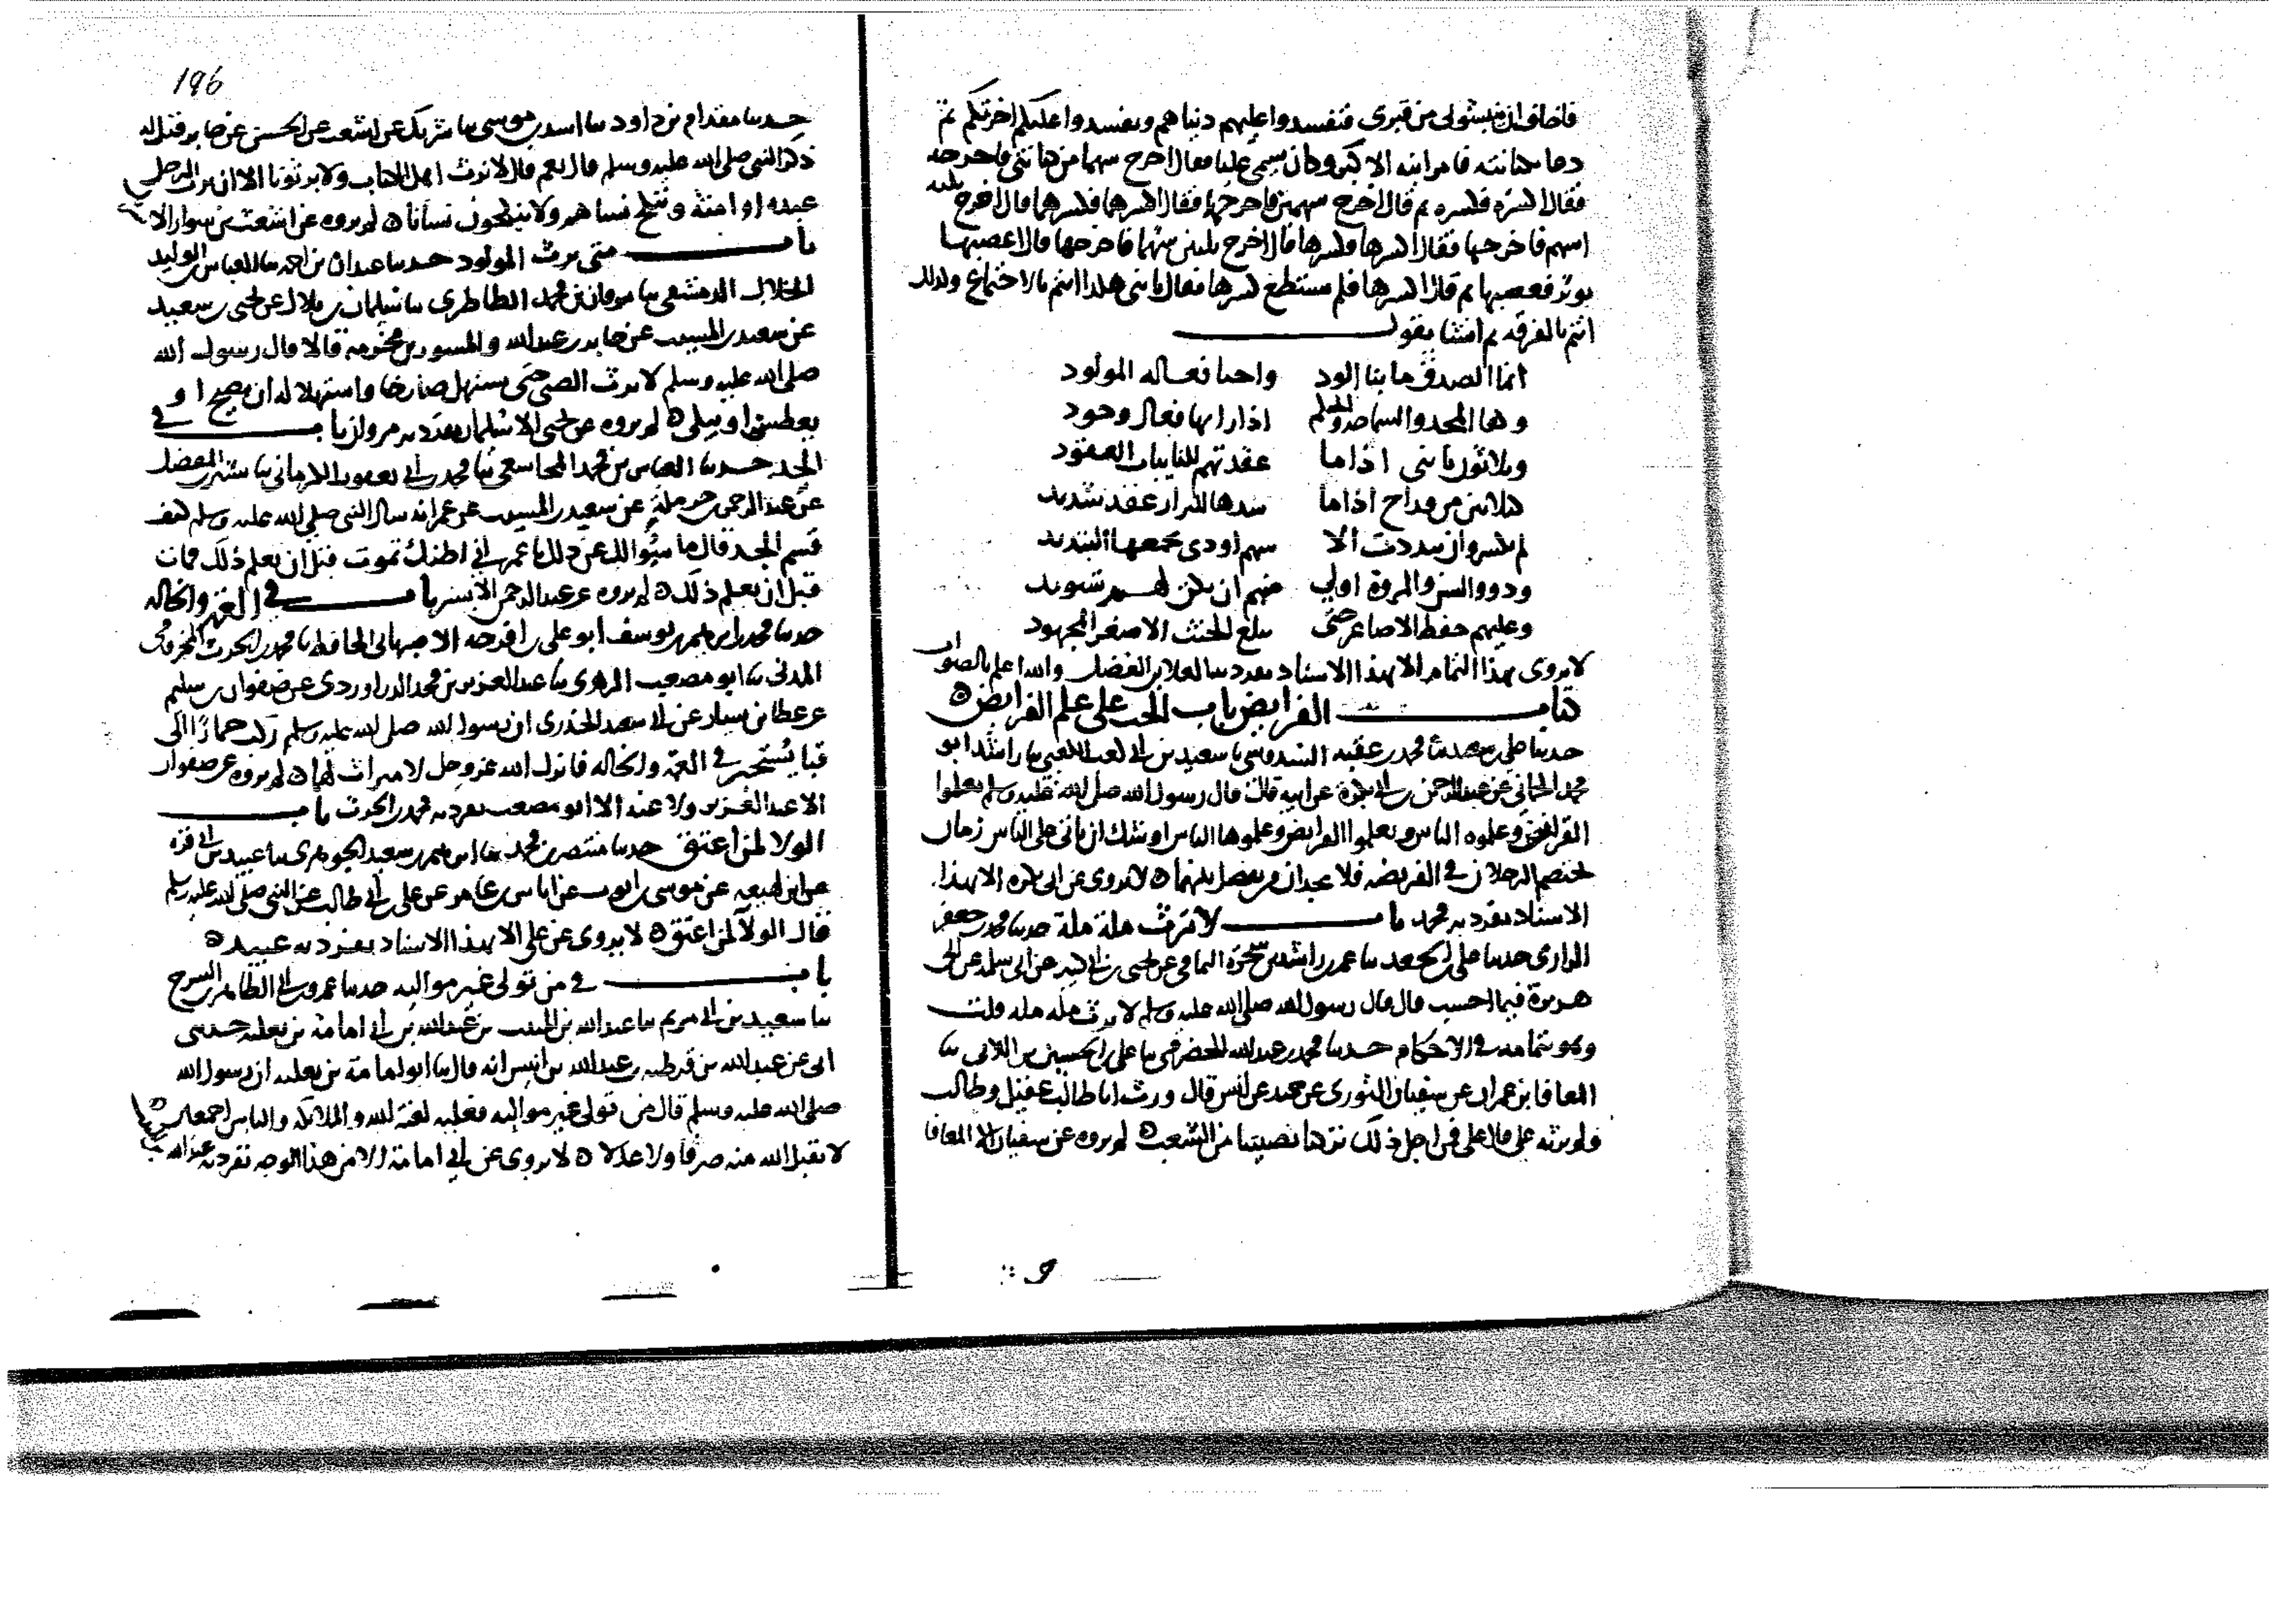 فاخاف ان ينبشوني من قبري فتفسدوا عليهم دنياهم ويفسدوا عليكم اخرتكم ثم
دعا بكنانته فامر ابنه الاكبر وكان يسمى عليا فقال اخرج سهما من كنانتي فاخرجه
فقال اكسره فكسره ثم قال اخرج سهمين فاخرجهما فقال اكسرهما فكسرهما قال اخرج ثلثه
اسهم فاخرجها فقال اكسرها فكسرها قال اخرج ثلثين سهما فاخرجها قال اعصبها
بوتر فعصبها ثم قال اكسرها فلم يستطع كسرها فقال يا بني هكذا انتم بالاجتماع وكذلك
انتم بالفرقه ثم انشا يقول
انما الصدق ما بنا الود واحيا فعاله المولود
وكفا المجد والسماحه والحلم اذا زانها فعال وجود
وثلاثون يا بني اذا ما عقدتهم للنايبات العقود
كثلاثين من قداح اذا ما شدها للمراد عقد شديد
لم تكسر وان بددت الا سهم اودى بجمعها التبديد
وذوو السن والمروة اولى منهم ان يكن لهم تسويد
وعليهم حفظ الاصاغر حتى يبلغ الحنث الاصغر المجهود
لا يروى بهذا التمام الا بهذا الاسناد تفرد به العلا بن الفضل والله اعلم بالصواب
كتاب الفرايض باب الحث على علم الفرايض
حدثنا علي بن سعيد ثنا محمد بن عقبه السدوسي ثنا سعيد بن ابي كعب الكعبي ثنا راشد ابو
محمد الحماني عن عبد الرحمن بن ابي بكرة عن ابيه قال قال رسول الله صلى الله عليه وسلم تعلموا
القران وعلموه الناس وتعلموا الفرايض وعلموها الناس اوشك ان ياتي على الناس زمان
يختصم الرجلان في الفريضه فلا يجدان من يفصل بينهما لا يروى عن ابي بكره الا بهذا
الاسناد تفرد به محمد باب لا ترث ملة ملة حدثنا محمد بن جعفر
الرازي حدثنا علي بن الجعد ثنا عمر بن راشد بن شجرة اليمامي عن يحيى بن ابي كثير عن ابي سلمه عن ابي
هريرة فيما احسب قال قال رسول الله صلى الله عليه وسلم لا ترث مله مله قلت
وهو بتمامه في الاحكام حدثنا محمد بن عبد الله الحضرمي ثنا علي بن الحسين بن اللاني ثنا
المعافا بن عمران عن سفيان الثوري عن حميد عن انس قال ورث ابا طالب عقيل وطالب
ولم يرثه علي قال علي فمن اجل ذلك تركنا نصيبنا من الشعب لم يروه عن سفيان الا المعافا
196
حدثنا مقدام بن داود ثنا اسد بن موسى ثنا شريك عن اشعث عن الحسن عن جابر فقيل له
ذكر النبي صلى الله عليه وسلم قال نعم قال لا نرث اهل الكتاب ولا يرثونا الا ان يرث الرجل
عبده او امته وننكح نساهم ولا ينكحون نسانا لم يروه عن اشعث بن سوار الا
باب متى يرث المولود حدثنا عبدان بن احمد ثنا العباس بن الوليد
الخلال الدمشقي ثنا مروان بن محمد الطاطري ثنا سليمان بن بلال عن يحيى بن سعيد
عن سعيد بن المسيب عن جابر بن عبد الله والمسور بن مخرمه قالا قال رسول الله
صلى الله عليه وسلم لا يرث الصبي حتى يستهل صارخا واستهلاله ان يصيح او
يعطس او يبكي لم يروه عن يحيى الا سليمان تفرد به مروان باب في
الجد حدثنا العباس بن محمد المجاشعي ثنا محمد بن ابي يعقوب الكرماني ثنا بشر بن المفضل
عن عبد الرحمن بن حرملة عن سعيد بن المسيب عن عمر انه سال النبي صلى الله عليه وسلم كيف
قسم الجد قال ما سؤالك عن ذلك يا عمر اني اظنك تموت قبل ان تعلم ذلك فمات
قبل ان يعلم ذلك لم يروه عن عبد الرحمن الا بشر باب في العمة والخاله
حدثنا محمد بن ابراهيم بن يوسف ابو علي بن افرجه الاصبهاني الحافظ ثنا محمد بن الحرث المخزومي
المدني ثنا ابو مصعب الزهري ثنا عبد العزيز بن محمد الدراوردي عن صفوان بن سليم
عن عطا بن يسار عن ابي سعيد الخدري ان رسول الله صلى الله عليه وسلم ركب حمارا الى
قبا يستخير في العمه والخاله فانزل الله عز وجل لا ميراث لهما لم يروه عن صفوان
الا عبد العزيز ولا عنه الا ابو مصعب تفرد به محمد بن الحرث باب
الولا لمن اعتق حدثنا منتصر بن محمد ثنا ابراهيم بن سعيد الجوهري ثنا عبيد بن ابي قرة
عن ابن لهيعه عن موسى بن ايوب عن اياس بن عامر عن علي بن ابي طالب عن النبي صلى الله عليه وسلم
قال الولا لمن اعتق لا يروى عن علي الا بهذا الاسناد تفرد به عبيد
باب في من تولى غير مواليه حدثنا عمرو بن ابي الطاهر بن السرح
ثنا سعيد بن ابي مريم ثنا عبد الله بن المنيب بن عبد الله بن ابي امامة بن ثعلبه حدثني
ابي عن عبد الله بن عبد الله بن انيس انه قال ثنا ابو امامة بن ثعلبه ان رسول الله
صلى الله عليه وسلم قال من تولى غير مواليه فعليه لعنة الله والملائكه والناس اجمعين
لا يقبل الله منه صرفا ولا عدلا لا يروى عن ابي امامة الا من هذا الوجه تفرد به عبد الله